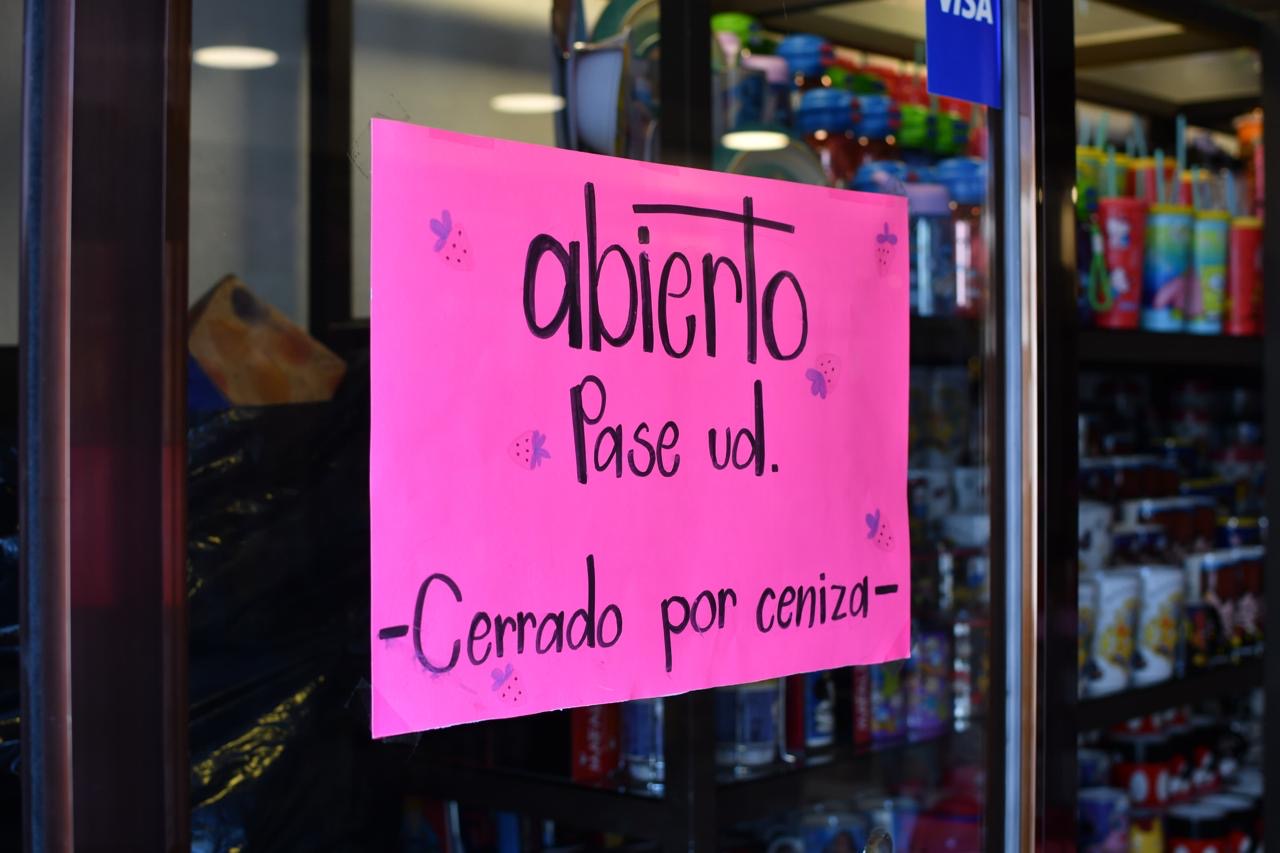 VISA
abierto
Pase ud.
-Cerrado por ceniza-